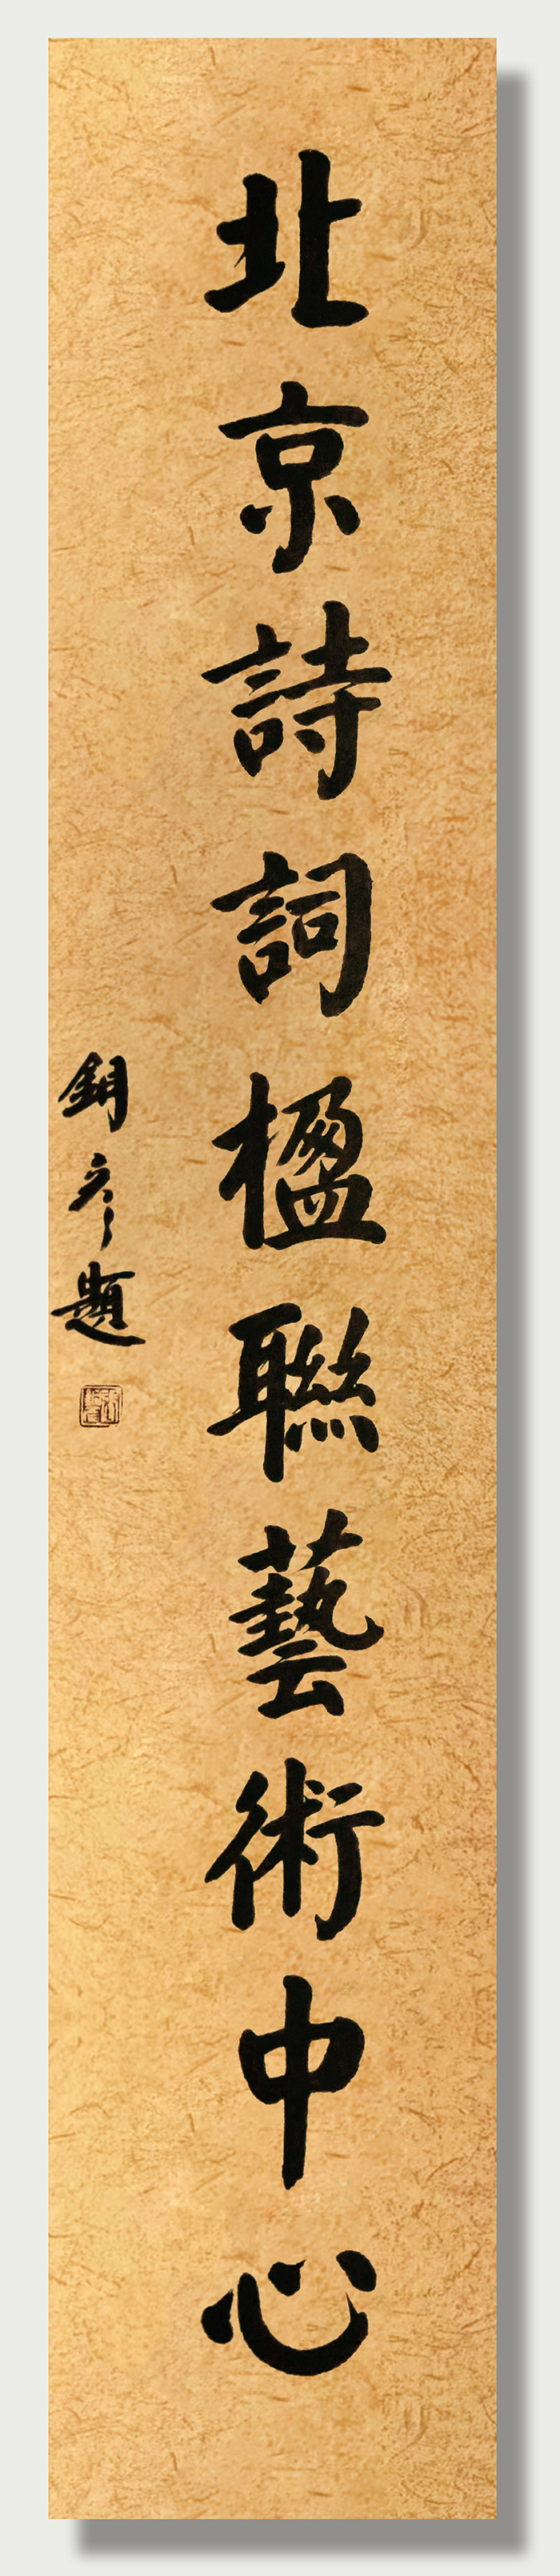 北京詩詞楹聯藝術中心
銅彥題